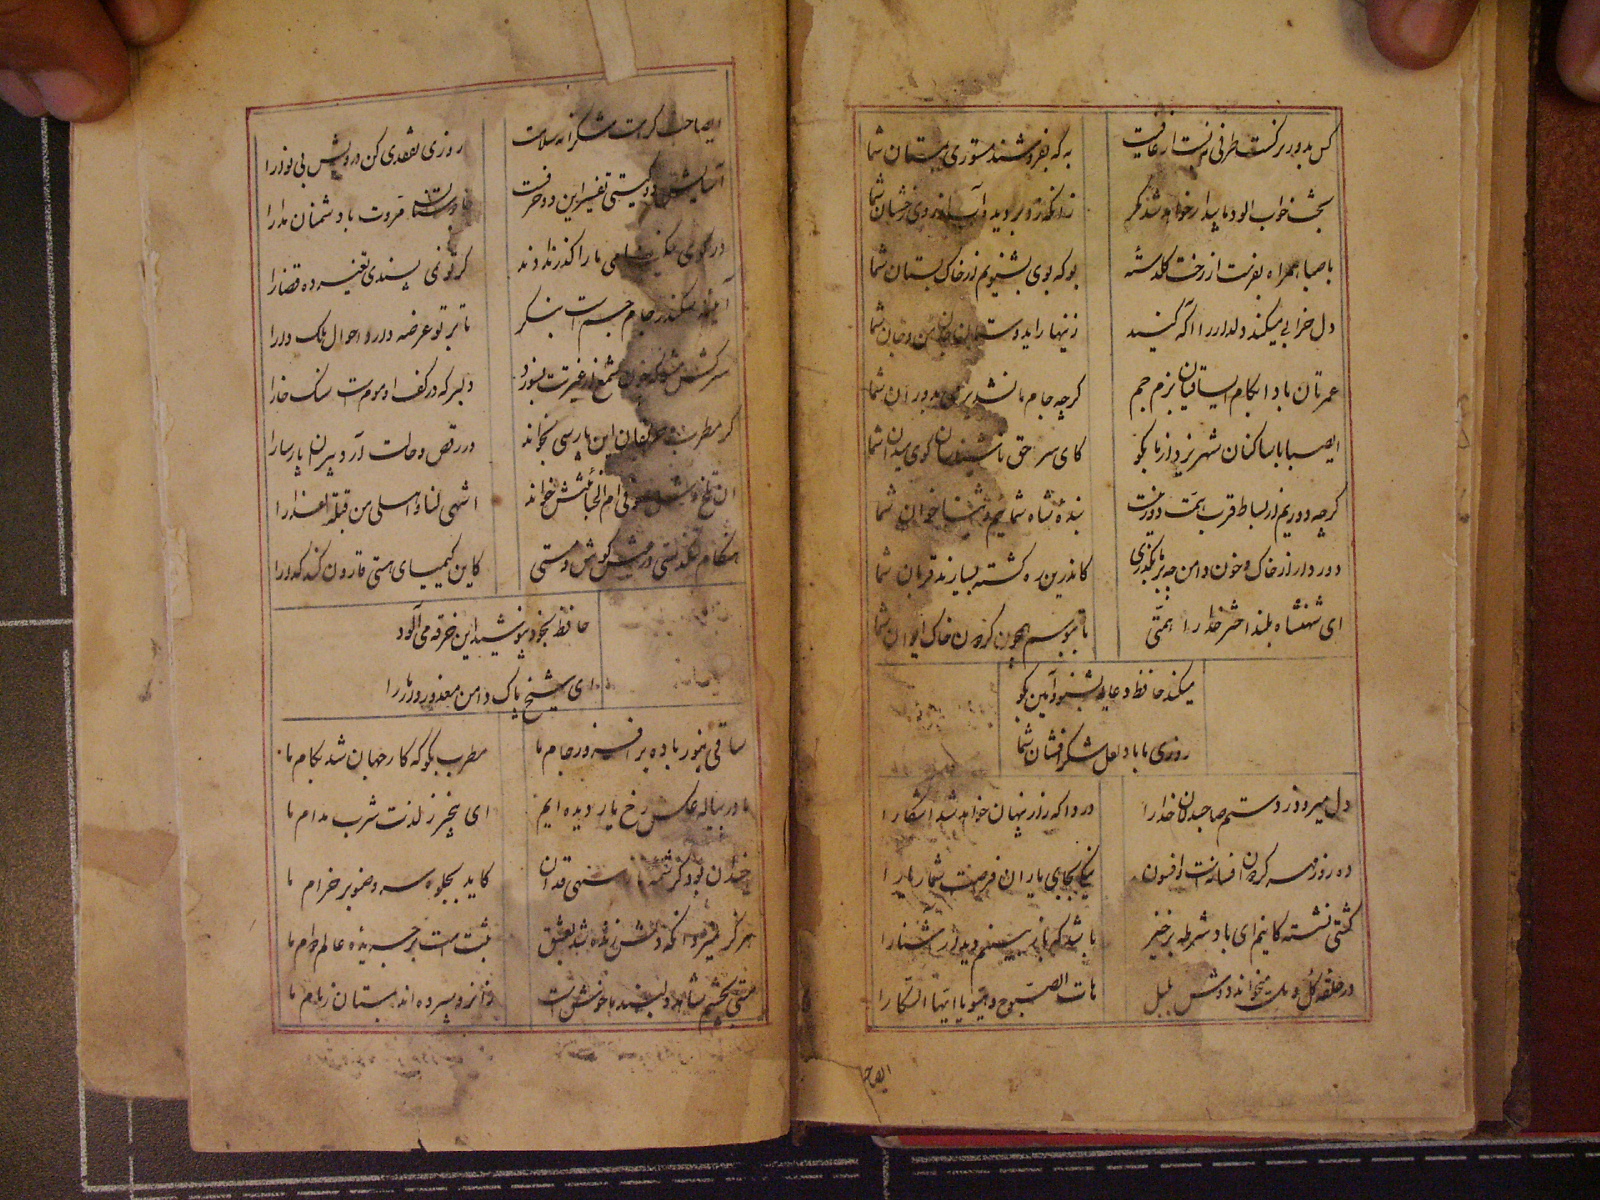 کس بدور نرگست طرفی نبست از عافیت به که نفروشند مستوری بمستان شما
بخت خواب الود ما بیدار خواهد شد مکر زانکه زد بر دیده آب از روی رخشان شما
با صبا همراه بفرست از رخت کلدسته بو که بوی بشنویم از خاک بستان شما
دل خرابی میکند دلدار را اکه کنید زینهار ای دوستان جان من و جان شما
عمرتان باد ا بکام ایساقیان بزم جم کرچه جام ما نشد پر می بدوران شما
ایصبا با ساکنان شهر یزد از ما بکو کای سر حق ناشناسان کوی میدان شما
کرچه دوریم از بساط قرب همت دور نیست بنده شاه شمائیم و ثنا خوان شما
دور دار از خاک و خون دامن چه بر ما بکذری کاندرین ره کشته بسیارند قربان شما
ای شهنشاه بلند اختر خدا را همتی تا ببوسم همچون کردون خاک ایوان شما
میکند حافظ دعای بشنو و آمین بکو
روزی ما باد لعل شکر افشان شما
دل میرود ز دستم صاحبدلان خدا را دردا که راز پنهان خواهد شد اشکارا
ده روزه مهر کردون افسانه است و افسون نیکی بجای یاران فرصت شمار یارا
کشتی نشسته کانیم ای باد شرطه برخیز باشد که باز بینیم دیدار آشنا را
در حلقه کل و مل خوش خواند دوش بلبل هات الصبوح و هبوا یا ایها السکارا
ایصاحب
ایصاحب کرامت شکرانه سلامت روزی تفقدی کن درویش بی نوا را
آسایش دو کیتی تفسیر این دو حرفست با دوستان مروت با دشمنان مدارا
در کوی نیکنامی ما را کذر ندادند کر تو نمی پسندی تغییر ده قضا را
آینه سکندر جام جم است بنکر تا بر تو عرضه دارد احوال ملک دارا
سرکش مشو که چون شمع از غیرتت بسوزد دلبر که در کف او موم است سنک خارا
کر مطرب حریفان این پارسی بخواند در رقص و حالت آرد پیران پارسا را
ان تلخ وش که صوفی ام الخبائثش خواند اشهی لنا و احلی من قبلة العذارا
هنکام تنکدستی در عیش کوش و مستی کاین کیمیای هستی قارون کند کدا را
حافظ بخود نپوشید این خرقه می آلود
ای شیخ پاک دامن معذور دار ما را
ساقی بنور باده بر افروز جام ما مطرب بکو که کار جهان شد بکام ما
ما در پیاله عکس رخ یار دیده ایم ای بیخبر ز لذت شرب مدام ما
چندان بود کرشمه سهی قدان کاید بجلوه سرو صنوبر خرام ما
هرکز نمیرد آنکه دلش زنده شد بعشق ثبت است بر جریده عالم دوام ما
مستی بچشم شاهد دلبند ما خوش است زانرو سپرده اند بمستان زمام ما